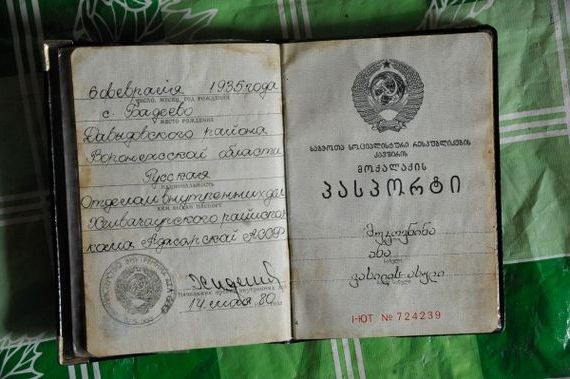 6 февраля 1935 года
число, месяц, год рождения
с. Бадеево
место рождения
Давыдовского района
Воронежской области
Русская
национальность
Отделом внутренних дел
кем выдан паспорт
Хелвачаурского райиспол-
кома Аджарской АССР
14 мая 80
საბჭოთა სოციალისტური რესპუბლიკების
კავშირის
მოქალაქის
პასპორტი
ანა
ვასილის ასული
I-ЮТ № 724239